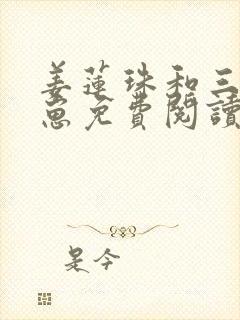 姜蓮珠和三
崽免費閱讀
是今